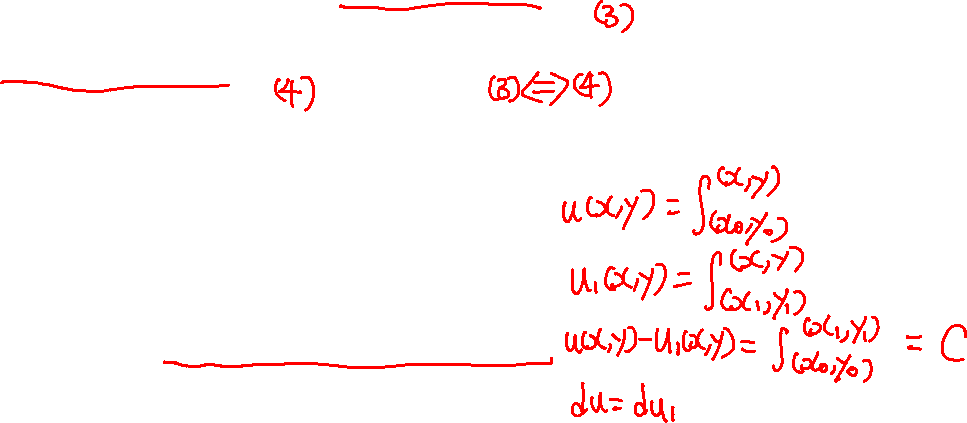 (3)
(4) (3)⟺(4)
u(x,y) = ∫_{(x₀,y₀)}^{(x,y)}
u₁(x,y) = ∫_{(x₁,y₁)}^{(x,y)}
u(x,y)-u₁(x,y) = ∫_{(x₀,y₀)}^{(x₁,y₁)} = C
du = du₁